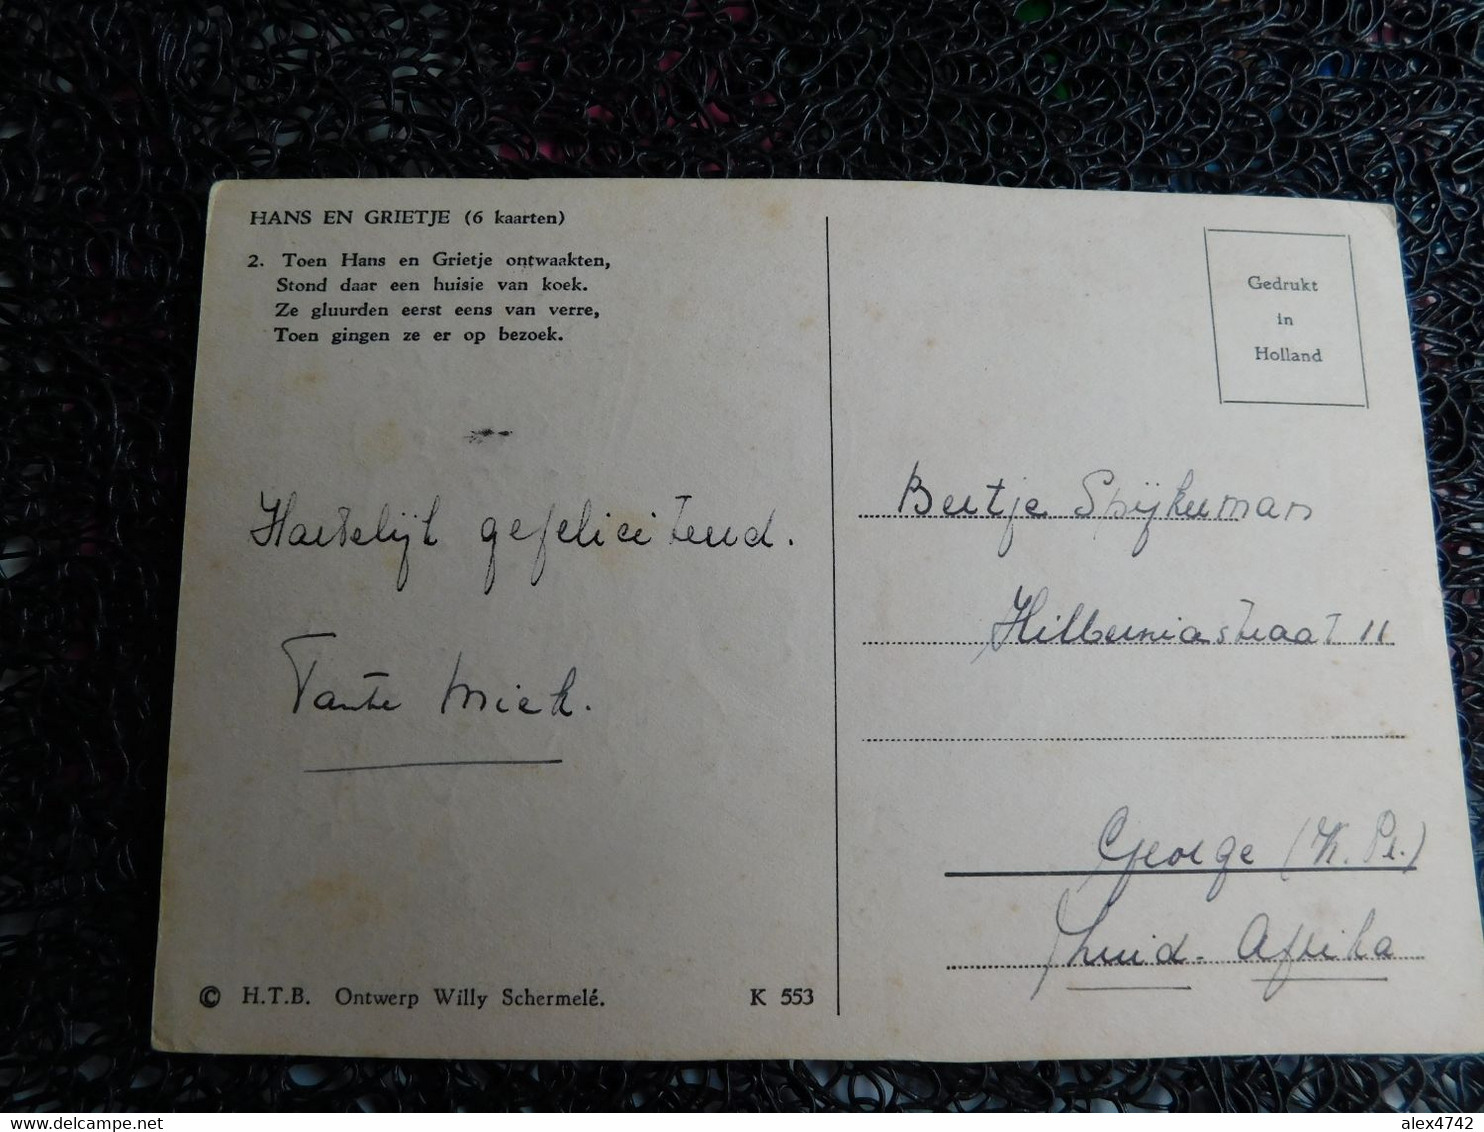 HANS EN GRIETJE (6 kaarten)
2. Toen Hans en Grietje ontwaakten,
Stond daar een huisie van koek.
Ze gluurden eerst eens van verre,
Toen gingen ze er op bezoek.
Hartelijk gefeliciteerd.
Tante Miek.
© H.T.B. Ontwerp Willy Schermelé.
K 553
Gedrukt
in
Holland
Bertje Spijkerman
Hilberniastraat 11
George (K. Pr.)
Zuid-Afrika
alex4742